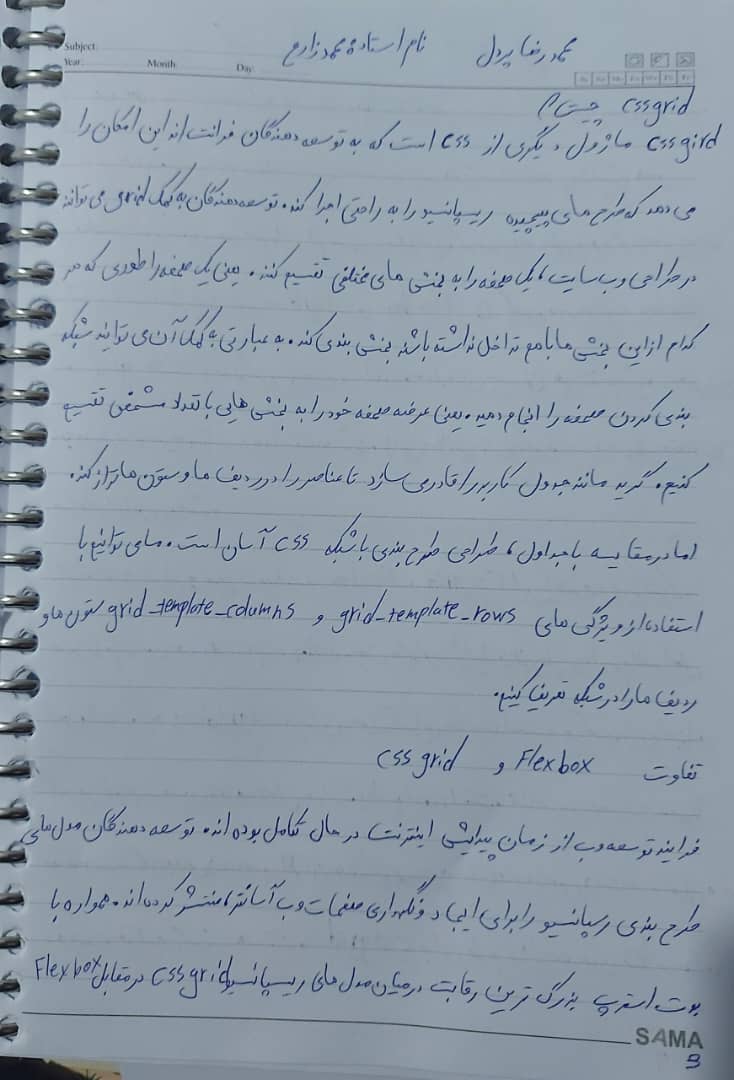 Subject:
Year: Month: Day:
محمدرضا پردل نام استاد: محمد زارع
Sa Su Mo Tu We Th Fr
css grid چیست؟
css gird ماژول دیگری از css است که به توسعه دهندگان فرانت اند این امکان را
می دهد که طرح های پیچیده ریسپانسیو را به راحتی اجرا کند. توسعه دهندگان به کمک grid می توانند
در طراحی وب سایت، یک صفحه را به بخش های مختلفی تقسیم کنند. یعنی یک صفحه را طوری که هر
کدام از این بخش ها با هم تداخل نداشته باشند بخش بندی کند. به عبارتی به کمک آن می توانید شبکه
بندی کردن صفحه را انجام دهید. یعنی عرضه صفحه خود را به بخش هایی با تعداد مشخص تقسیم
کنیم. گرید مانند جدول کاربر را قادر می سازد تا عناصر را در ردیف ها و ستون ها تراز کند.
اما در مقایسه با جداول، طراحی طرح بندی با شبکه css آسان است. ما می توانیم با
استفاده از ویژگی های grid_template_rows و grid_template_columns ستون ها و
ردیف ها را در شبکه تعریف کنیم.
تفاوت Flexbox و css grid
فرایند توسعه وب از زمان پیدایش اینترنت در حال تکامل بوده اند. توسعه دهندگان مدل های
طرح بندی رسپانسیو را برای ایجاد و نگهداری صفحات وب آسانتر، منتشر کرده اند. همواره با
بوت استرپ بزرگ ترین رقابت در میان مدل های ریسپانسیو css grid در مقابل Flexbox
SAMA
3